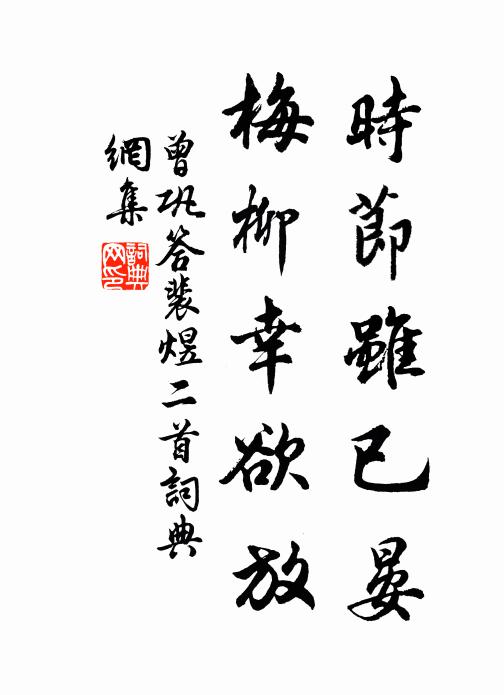 時節雖已晏
梅柳幸欲放
曾巩答裴煜二首詞典
網集
詞典網印